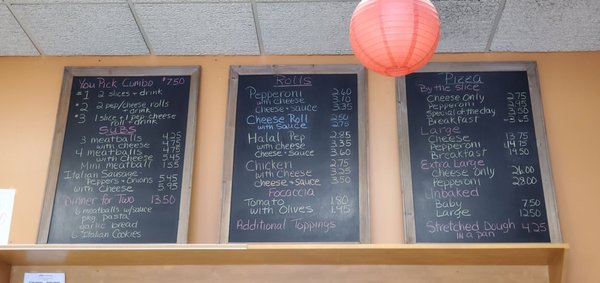 You Pick Combo $7.50
#1 2 slices + drink
#2 2 pep/cheese rolls
+ drink
#3 1 slice + 1 pep cheese
roll + drink
SUBS
3 meatballs 4.25
with cheese 4.75
4 meatballs 4.95
with cheese 5.45
Mini meatball 1.55
Italian Sausage
Peppers + Onions 5.45
with Cheese 5.95
Dinner for Two 13.50
6 meatballs w/sauce
pkg. pasta
garlic bread
6 Italian Cookies
Rolls
Pepperoni 2.60
with Cheese 3.10
cheese + sauce 3.35
Cheese Roll 2.50
with Sauce 2.75
Halal Pep 2.85
with Cheese 3.35
Cheese + Sauce 3.60
Chicken 2.75
with Cheese 3.25
cheese + sauce 3.50
Focaccia
Tomato 1.80
with Olives 1.95
Additional Toppings
Pizza
By the slice
Cheese Only 2.75
Pepperoni 2.95
Special of the day 3.50
Breakfast 3.65
Large
Cheese 13.75
Pepperoni 14.75
Breakfast 19.50
Extra Large
Cheese Only 26.00
Pepperoni 28.00
Unbaked
Baby 7.50
Large 12.50
Stretched Dough 4.25
in a pan